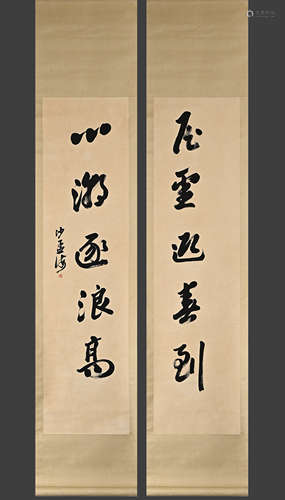 飛雪迎春到
心潮逐浪高
沙孟海